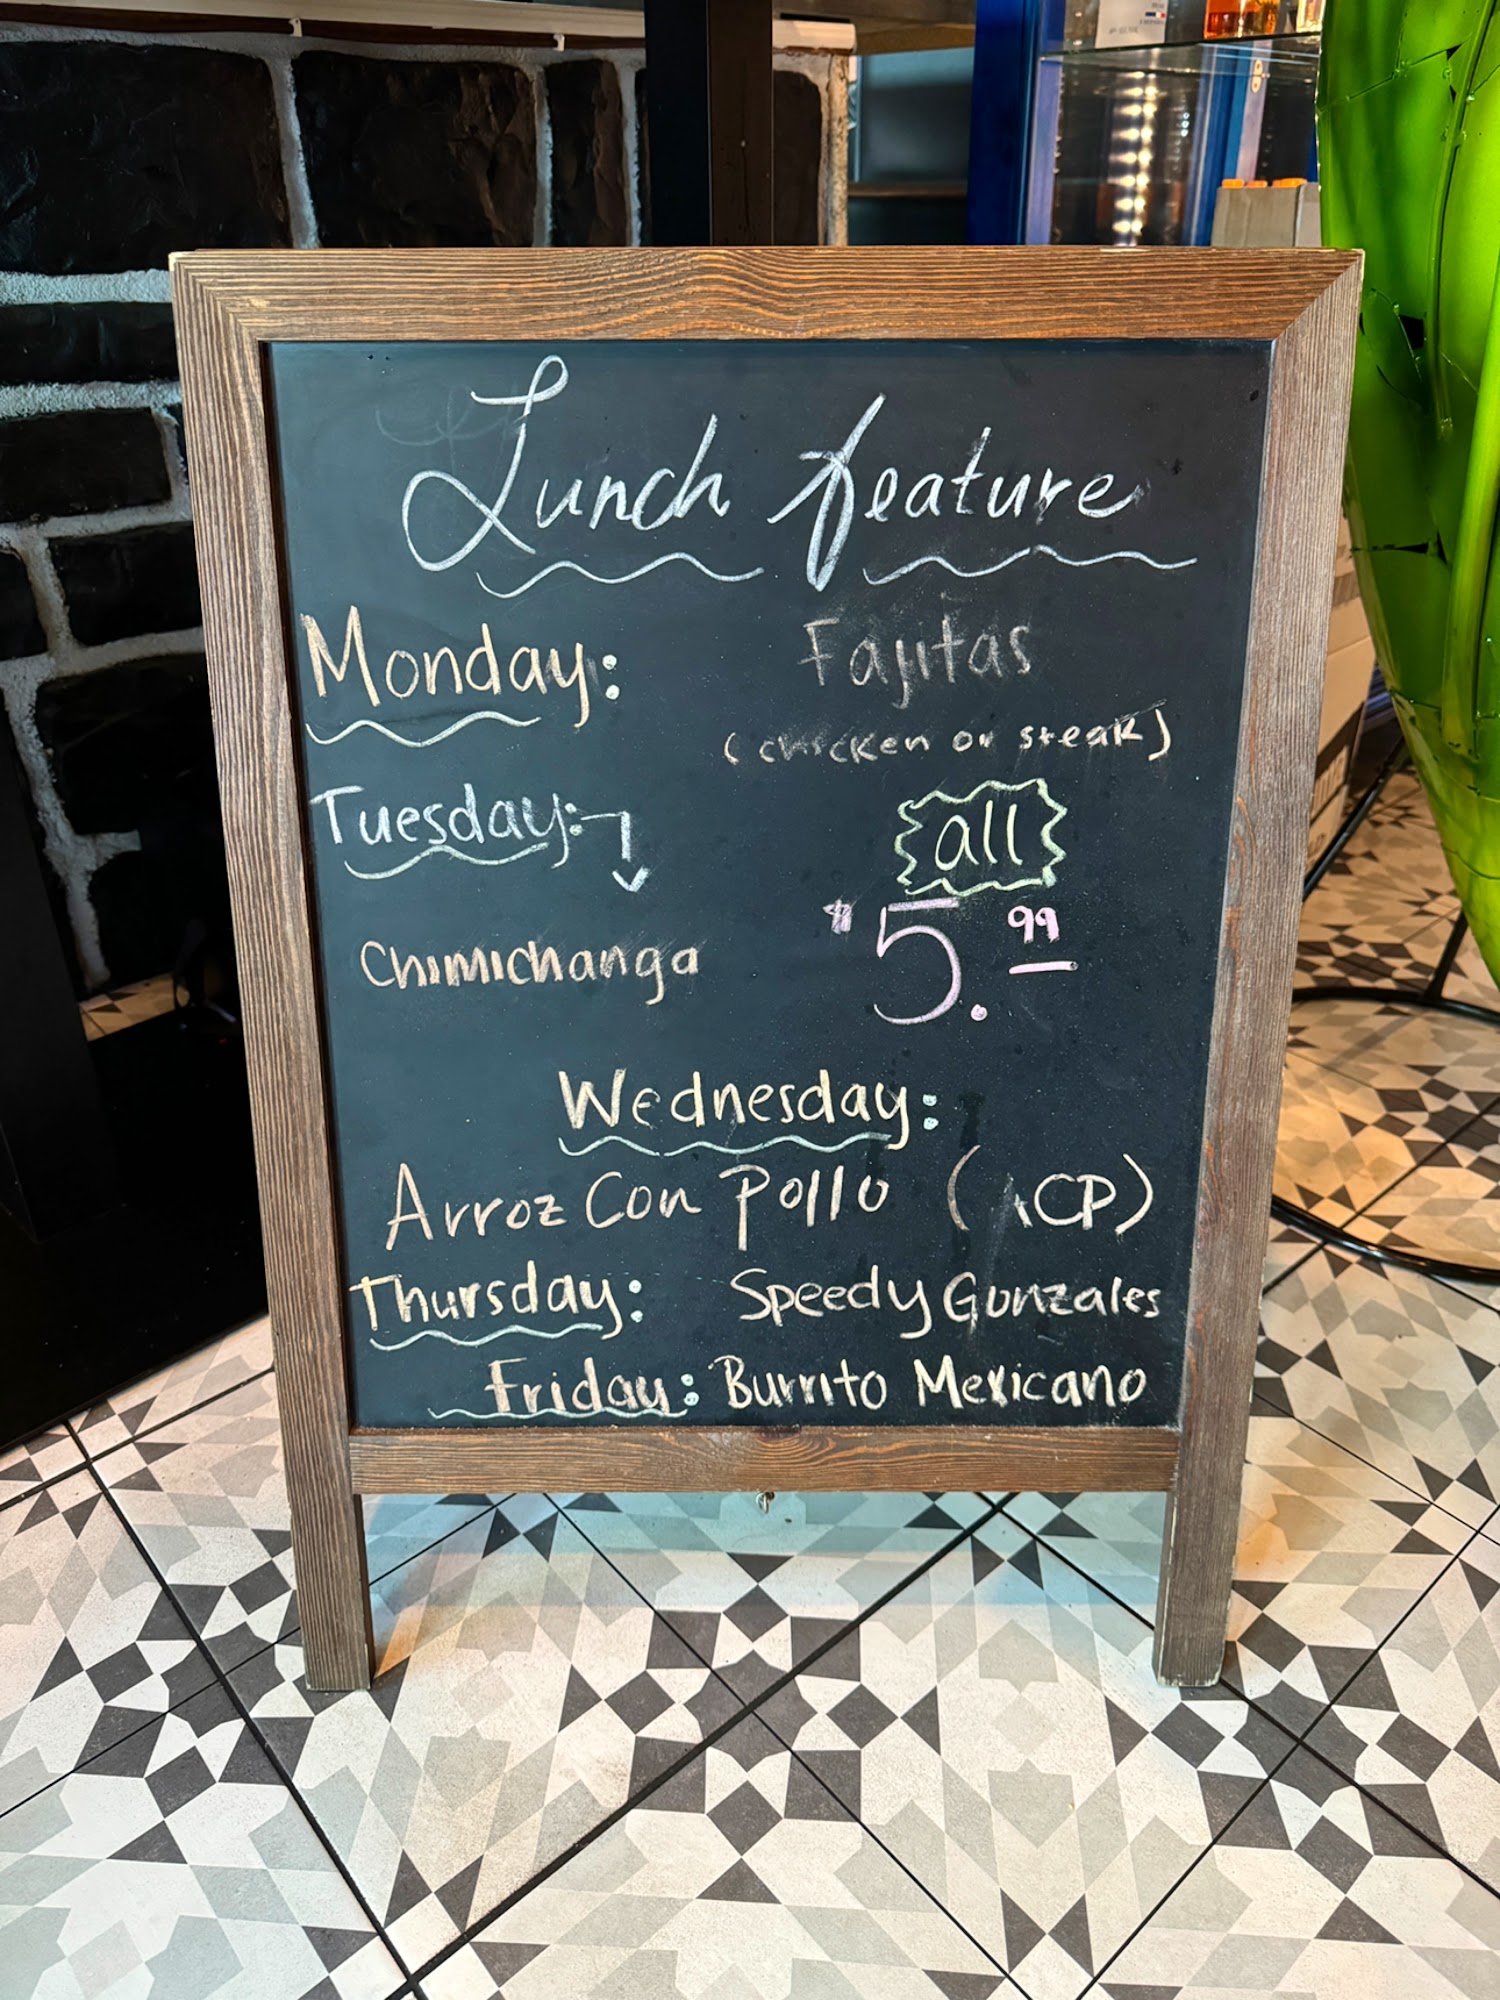 Lunch feature
Monday: Fajitas
(chicken or steak)
Tuesday:
all
Chimichanga $5.99
Wednesday:
Arroz Con Pollo (ACP)
Thursday: Speedy Gonzales
Friday: Burrito Mexicano